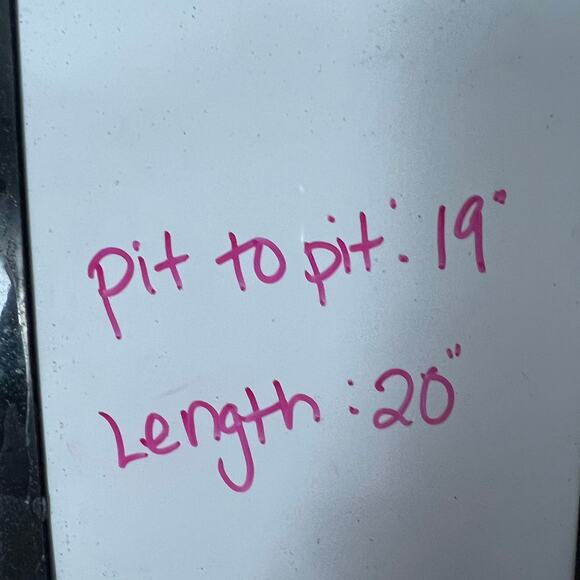 pit to pit: 19"
Length: 20"